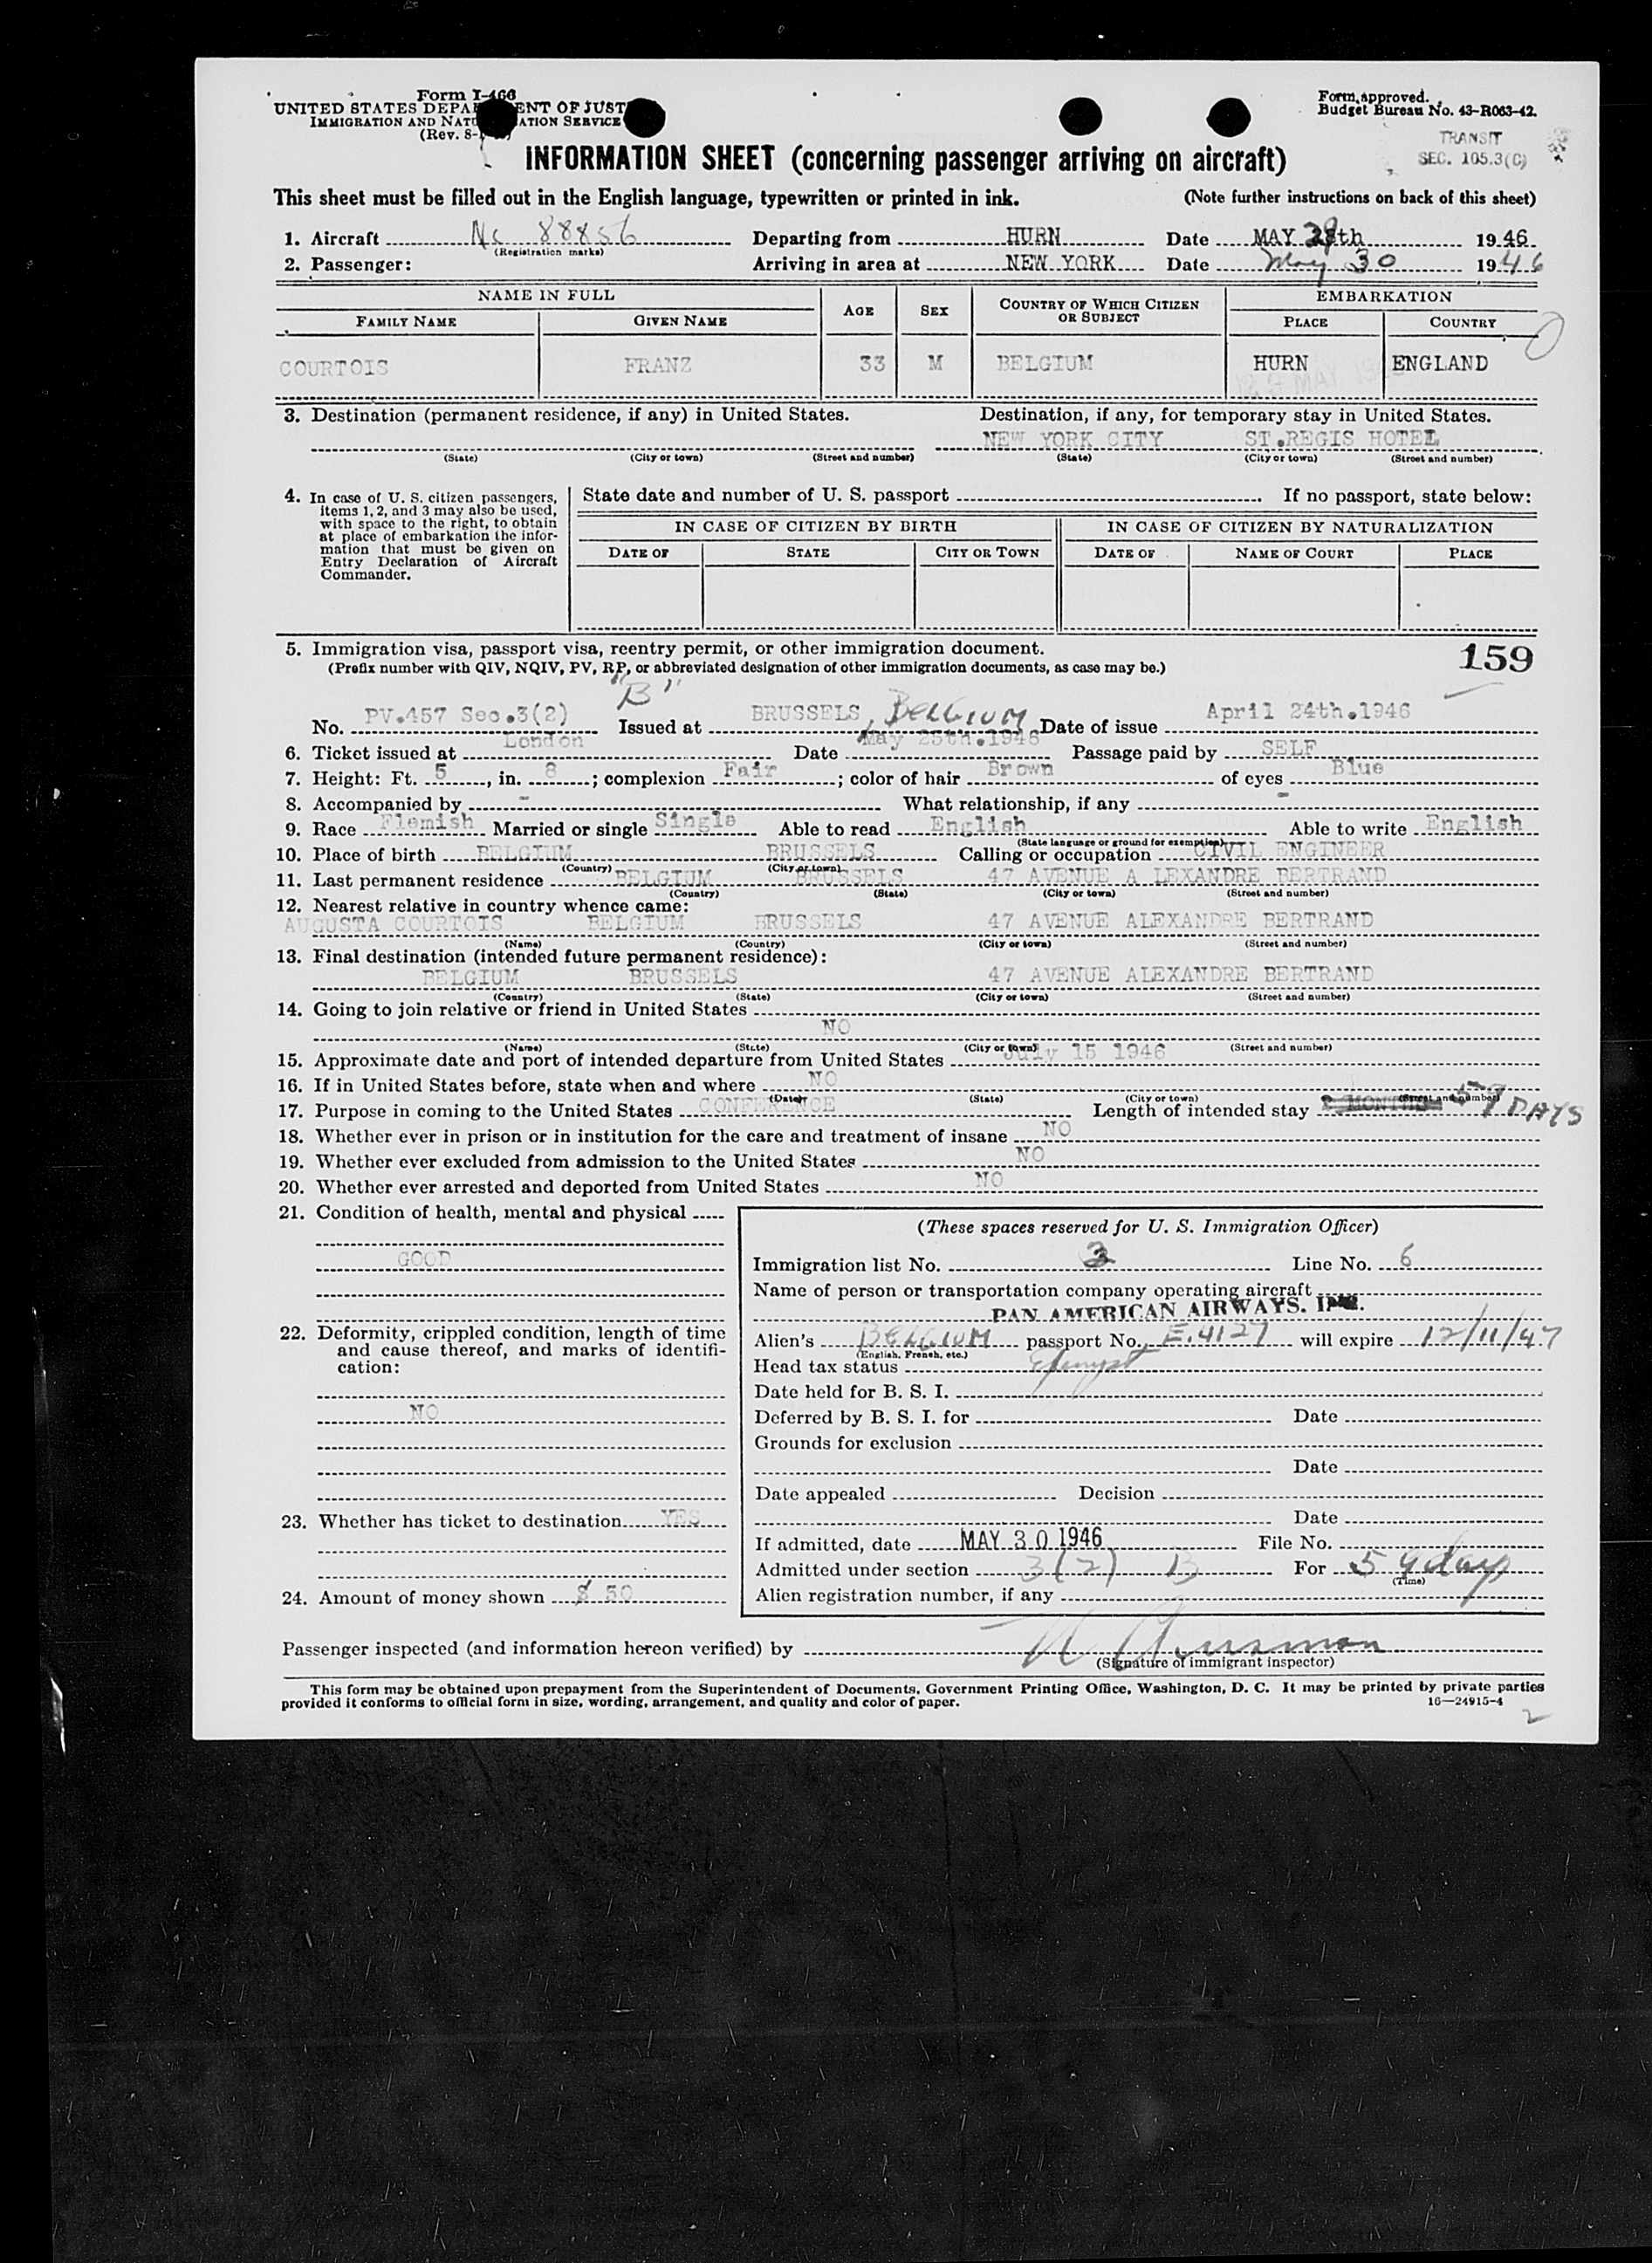 Form I-466
UNITED STATES DEPA ENT OF JUST
IMMIGRATION AND NATU ATION SERVICE
(Rev. 8-
Form approved.
Budget Bureau No. 43-R063-42.
TRANSIT
SEC. 105.3(C)
INFORMATION SHEET (concerning passenger arriving on aircraft)
This sheet must be filled out in the English language, typewritten or printed in ink. (Note further instructions on back of this sheet)
1. Aircraft Nc 88856 Departing from HURN Date MAY 29th 1946
(Registration marks)
2. Passenger: Arriving in area at NEW YORK Date May 30 1946
NAME IN FULL AGE SEX COUNTRY OF WHICH CITIZEN OR SUBJECT EMBARKATION
FAMILY NAME GIVEN NAME PLACE COUNTRY
COURTOIS FRANZ 33 M BELGIUM HURN ENGLAND
3. Destination (permanent residence, if any) in United States. Destination, if any, for temporary stay in United States.
NEW YORK CITY ST.REGIS HOTEL
(State) (City or town) (Street and number) (State) (City or town) (Street and number)
4. In case of U. S. citizen passengers, items 1, 2, and 3 may also be used, with space to the right, to obtain at place of embarkation the information that must be given on Entry Declaration of Aircraft Commander.
State date and number of U. S. passport If no passport, state below:
IN CASE OF CITIZEN BY BIRTH IN CASE OF CITIZEN BY NATURALIZATION
DATE OF STATE CITY OR TOWN DATE OF NAME OF COURT PLACE
5. Immigration visa, passport visa, reentry permit, or other immigration document. 159
(Prefix number with QIV, NQIV, PV, RP, or abbreviated designation of other immigration documents, as case may be.)
"B"
No. PV.457 Sec.3(2) Issued at BRUSSELS, BELGIUM Date of issue April 24th.1946
6. Ticket issued at London Date May 25th.1946 Passage paid by SELF
7. Height: Ft. 5, in. 8; complexion Fair; color of hair Brown of eyes Blue
8. Accompanied by - What relationship, if any -
9. Race Flemish Married or single Single Able to read English Able to write English
(State language or ground for exemption)
10. Place of birth BELGIUM BRUSSELS Calling or occupation CIVIL ENGINEER
(Country) (City or town)
11. Last permanent residence BELGIUM BRUSSELS 47 AVENUE A LEXANDRE BERTRAND
(Country) (State) (City or town) (Street and number)
12. Nearest relative in country whence came:
AUGUSTA COURTOIS BELGIUM BRUSSELS 47 AVENUE ALEXANDRE BERTRAND
(Name) (Country) (City or town) (Street and number)
13. Final destination (intended future permanent residence):
BELGIUM BRUSSELS 47 AVENUE ALEXANDRE BERTRAND
(Country) (State) (City or town) (Street and number)
14. Going to join relative or friend in United States
NO
(Name) (State) (City or town) (Street and number)
15. Approximate date and port of intended departure from United States July 15 1946
16. If in United States before, state when and where NO
(Date) (State) (City or town) (Street and number)
17. Purpose in coming to the United States CONFERENCE Length of intended stay 2 MONTHS 59 DAYS
18. Whether ever in prison or in institution for the care and treatment of insane NO
19. Whether ever excluded from admission to the United States NO
20. Whether ever arrested and deported from United States NO
21. Condition of health, mental and physical
GOOD
22. Deformity, crippled condition, length of time and cause thereof, and marks of identification:
NO
23. Whether has ticket to destination YES
24. Amount of money shown $ 50
(These spaces reserved for U. S. Immigration Officer)
Immigration list No. 3 Line No. 6
Name of person or transportation company operating aircraft
PAN AMERICAN AIRWAYS. INC.
Alien's BELGIUM passport No. E.4127 will expire 12/11/47
(English, French, etc.)
Head tax status Exempt
Date held for B. S. I.
Deferred by B. S. I. for Date
Grounds for exclusion
Date
Date appealed Decision
Date
If admitted, date MAY 30 1946 File No.
Admitted under section 3(2) B For 59 days
(Time)
Alien registration number, if any
Passenger inspected (and information hereon verified) by
(Signature of immigrant inspector)
This form may be obtained upon prepayment from the Superintendent of Documents, Government Printing Office, Washington, D. C. It may be printed by private parties
provided it conforms to official form in size, wording, arrangement, and quality and color of paper. 16—24915-4
2